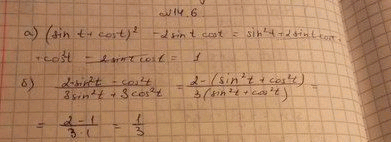 №14.6
а) (sin t + cost)² - 2 sin t cost = sin²t + 2 sint cost +
+ cos²t - 2 sin t cost = 1
б) (2 - sin²t - cos²t)/(3 sin²t + 3 cos²t) = (2 - (sin²t + cos²t))/(3 (sin²t + cos²t)) =
= (2 - 1)/(3·1) = 1/3